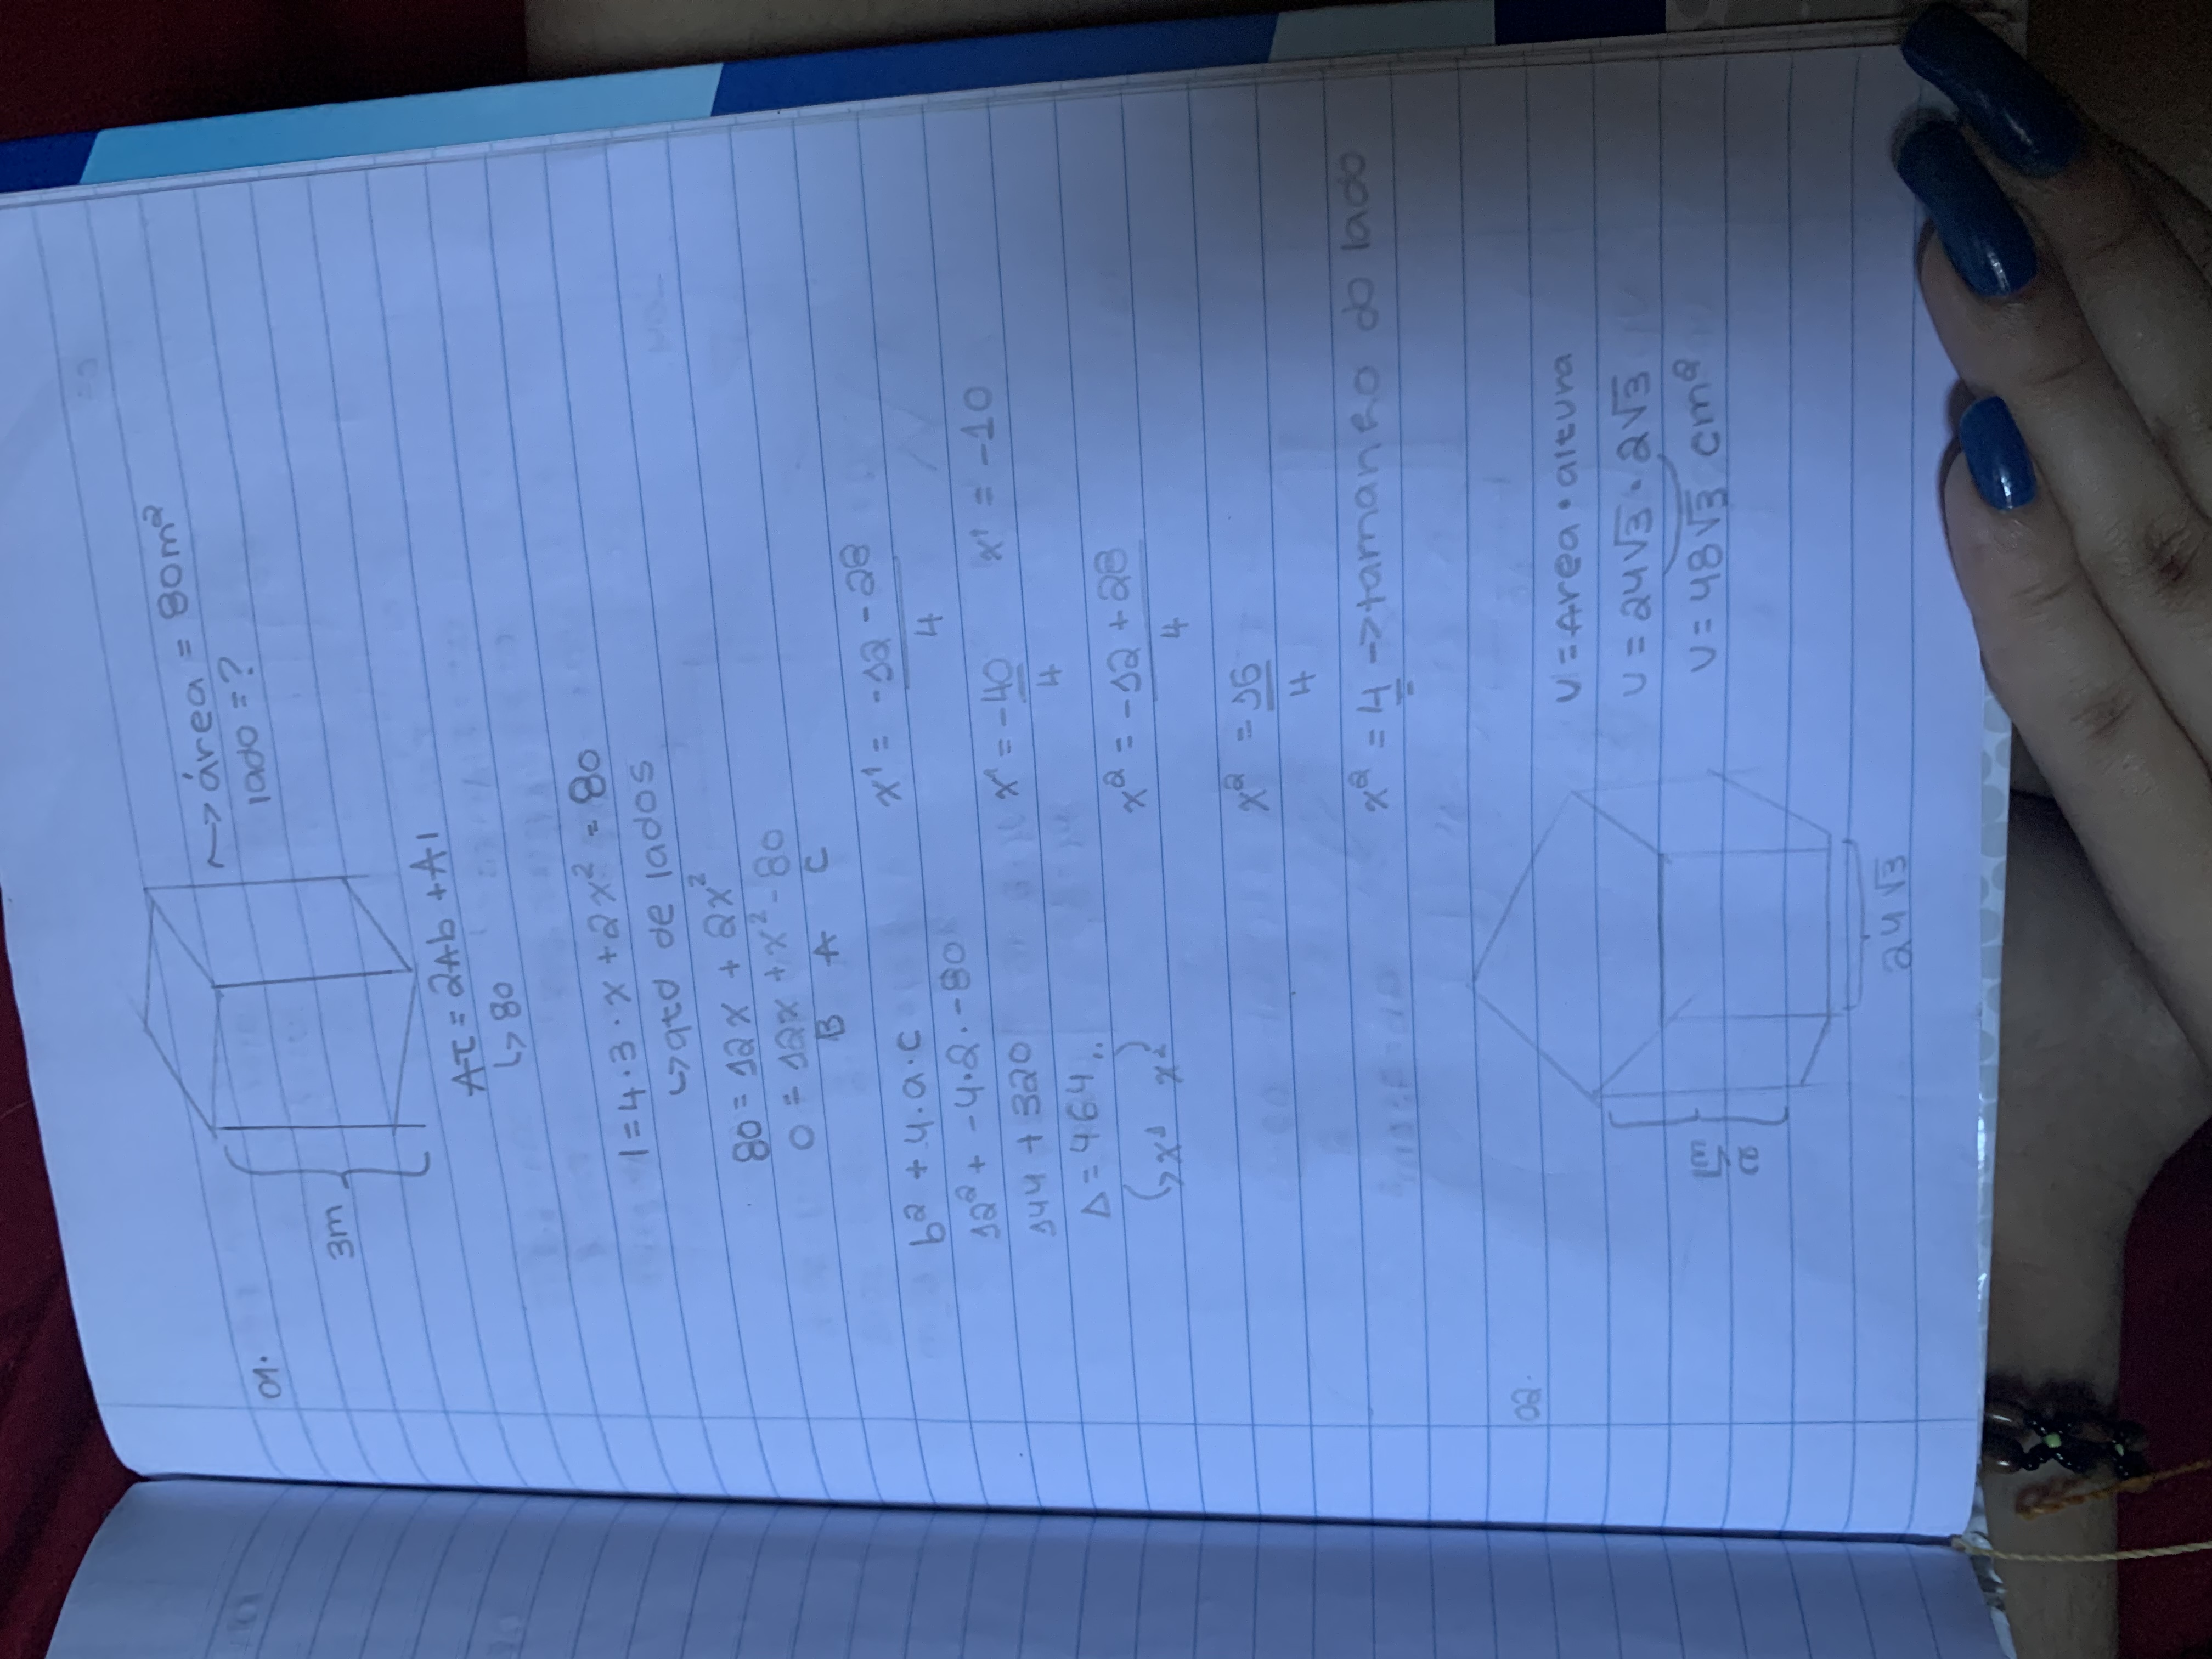 01.
3m
~> área = 80m²
lado = ?
AT = 2Ab + Al
↳ 80
l = 4 · 3 · x + 2x² = 80
↳ qtd de lados
80 = 12x + 2x²
0 = 12x + x² - 80
B A C
b² + 4 · a · c
12² + -4 · 2 · -80
144 + 320
Δ = 464
↳ x¹ x²
x¹ = -12 - 28
4
x¹ = -40
4
x¹ = -10
x² = -12 + 28
4
x² = 16
4
x² = 4 -> tamanho do lado
02.
2√3
24√3
V = Área · altura
V = 24√3 · 2√3
V = 48√3 cm²